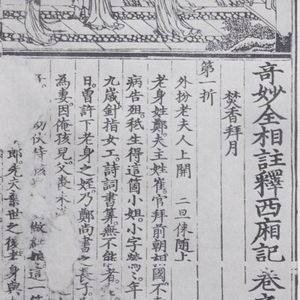 奇妙全相註釋西廂記 卷
焚香拜月
第一折
外扮老夫人上開 二旦俫随上
老身姓鄭夫主姓崔官拜前朝相國不
病告殂秖生得這箇小姐小字鶯々年
九歲針指女工詩詞書算無不能者
日曾許下老身之姪乃鄭尚書之長子
為妻因俺孩兒父喪未
幼伏侍孩 做紅娘這一
郎 先夫棄世之後老身與